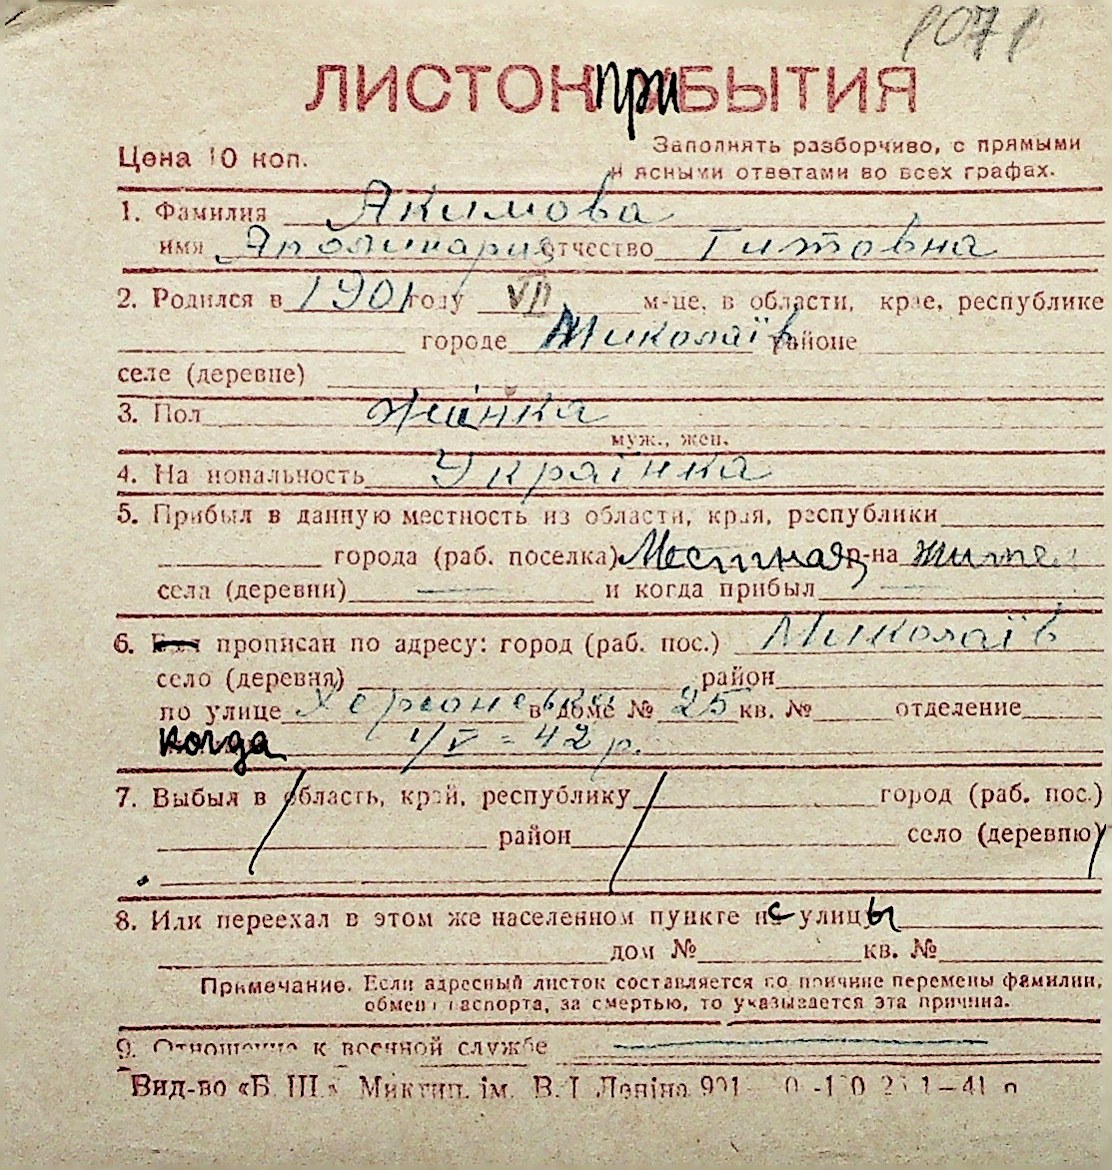 ЛИСТОК ПРИБЫТИЯ
Цена 10 коп.
Заполнять разборчиво, с прямыми
и ясными ответами во всех графах.
1. Фамилия Якимова
имя Аполинария отчество Титовна
2. Родился в 1901 году VII м-це, в области, крае, республике
городе Миколаїв районе
селе (деревне)
3. Пол жінка
муж., жен.
4. Национальность Українка
5. Прибыл в данную местность из области, края, республики
города (раб. поселка) Местная р-на жител
села (деревни) — и когда прибыл —
6. прописан по адресу: город (раб. пос.) Миколаїв
село (деревня) район
по улице Херсонська в доме № 25 кв. № отделение
когда 1/V - 42 р.
7. Выбыл в область, край, республику город (раб. пос.)
район село (деревню)
8. Или переехал в этом же населенном пункте с улицы
дом № кв. №
Примечание. Если адресный листок составляется по причине перемены фамилии,
обмена паспорта, за смертью, то указывается эта причина.
9. Отношение к военной службе —
Вид-во «Б. Ш.» Миктип. ім. В. І. Леніна 991